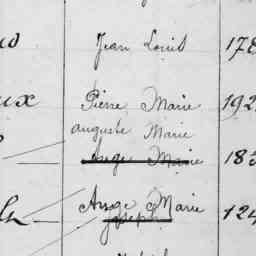 Jean Louis 178
ux Pierre Marie 192
Auguste Marie
Ange Marie 183
Ange Marie 124
Joseph